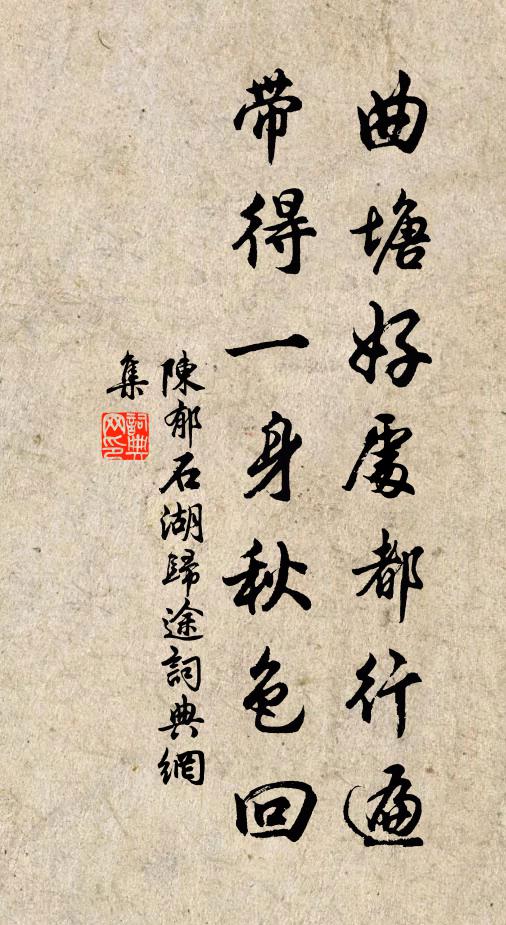 曲塘好處都行遍
帶得一身秋色回
陳郁石湖歸途詞典網
集
詞典網印